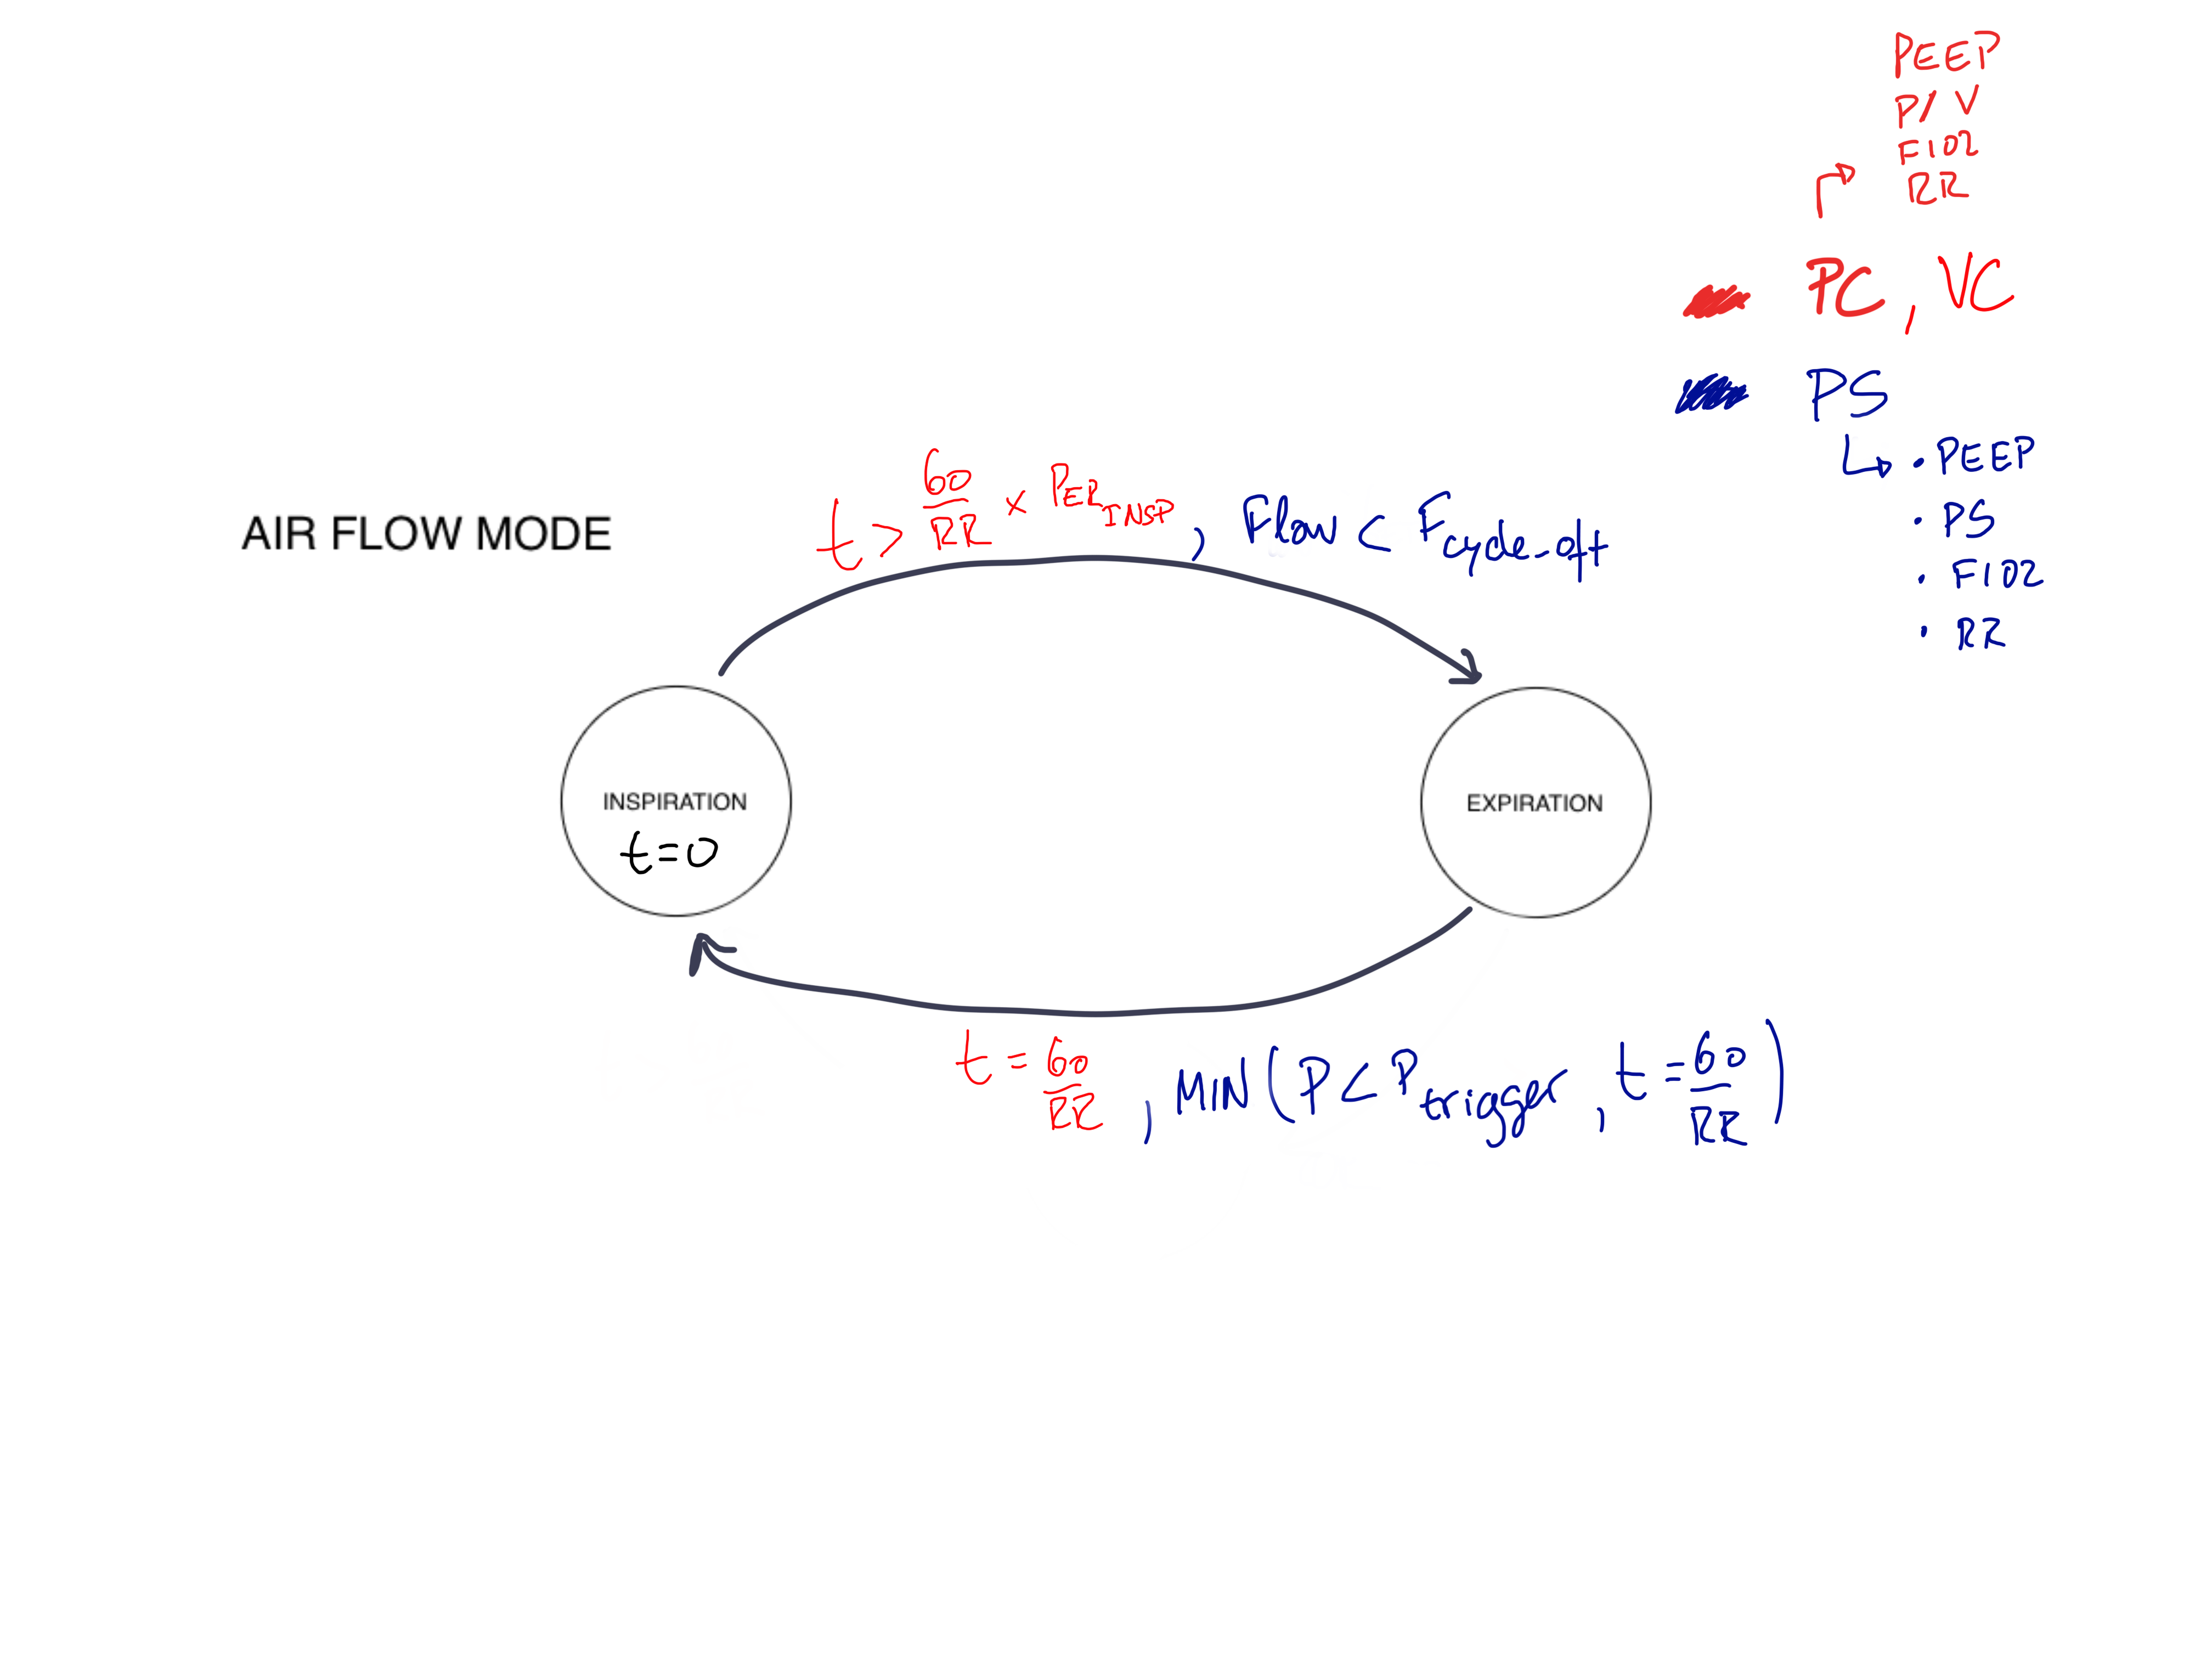 PEEP
P/V
FIO2
RR
PC, VC
PS
• PEEP
• PS
• FIO2
• RR
AIR FLOW MODE
t > 60/RR × PER INSP, Flow < F cycle-off
INSPIRATION
t=0
EXPIRATION
t = 60/RR, MIN(P < P trigger, t = 60/RR)